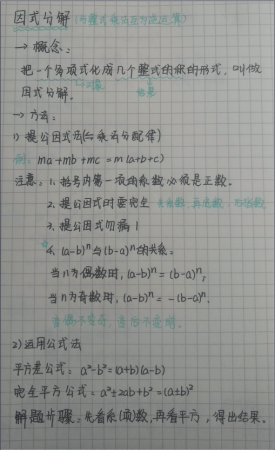 因式分解(与整式乘法互为逆运算)
→ 概念:
把一个多项式化成几个整式的积的形式,叫做
对象 结果
因式分解。
→ 方法:
1) 提公因式法(乘法分配律)
例: ma+mb+mc=m(a+b+c)
注意: 1. 括号内第一项的系数必须是正数。
2. 提公因式时要完全
3. 提公因式勿漏1
4. (a-b)ⁿ与(b-a)ⁿ的关系:
当n为偶数时, (a-b)ⁿ=(b-a)ⁿ,
当n为奇数时, (a-b)ⁿ=-(b-a)ⁿ.
2) 运用公式法
平方差公式: a²-b²=(a+b)(a-b)
完全平方公式: a²±2ab+b²=(a±b)²
解题步骤: 先看系(项)数,再看平方,得出结果。